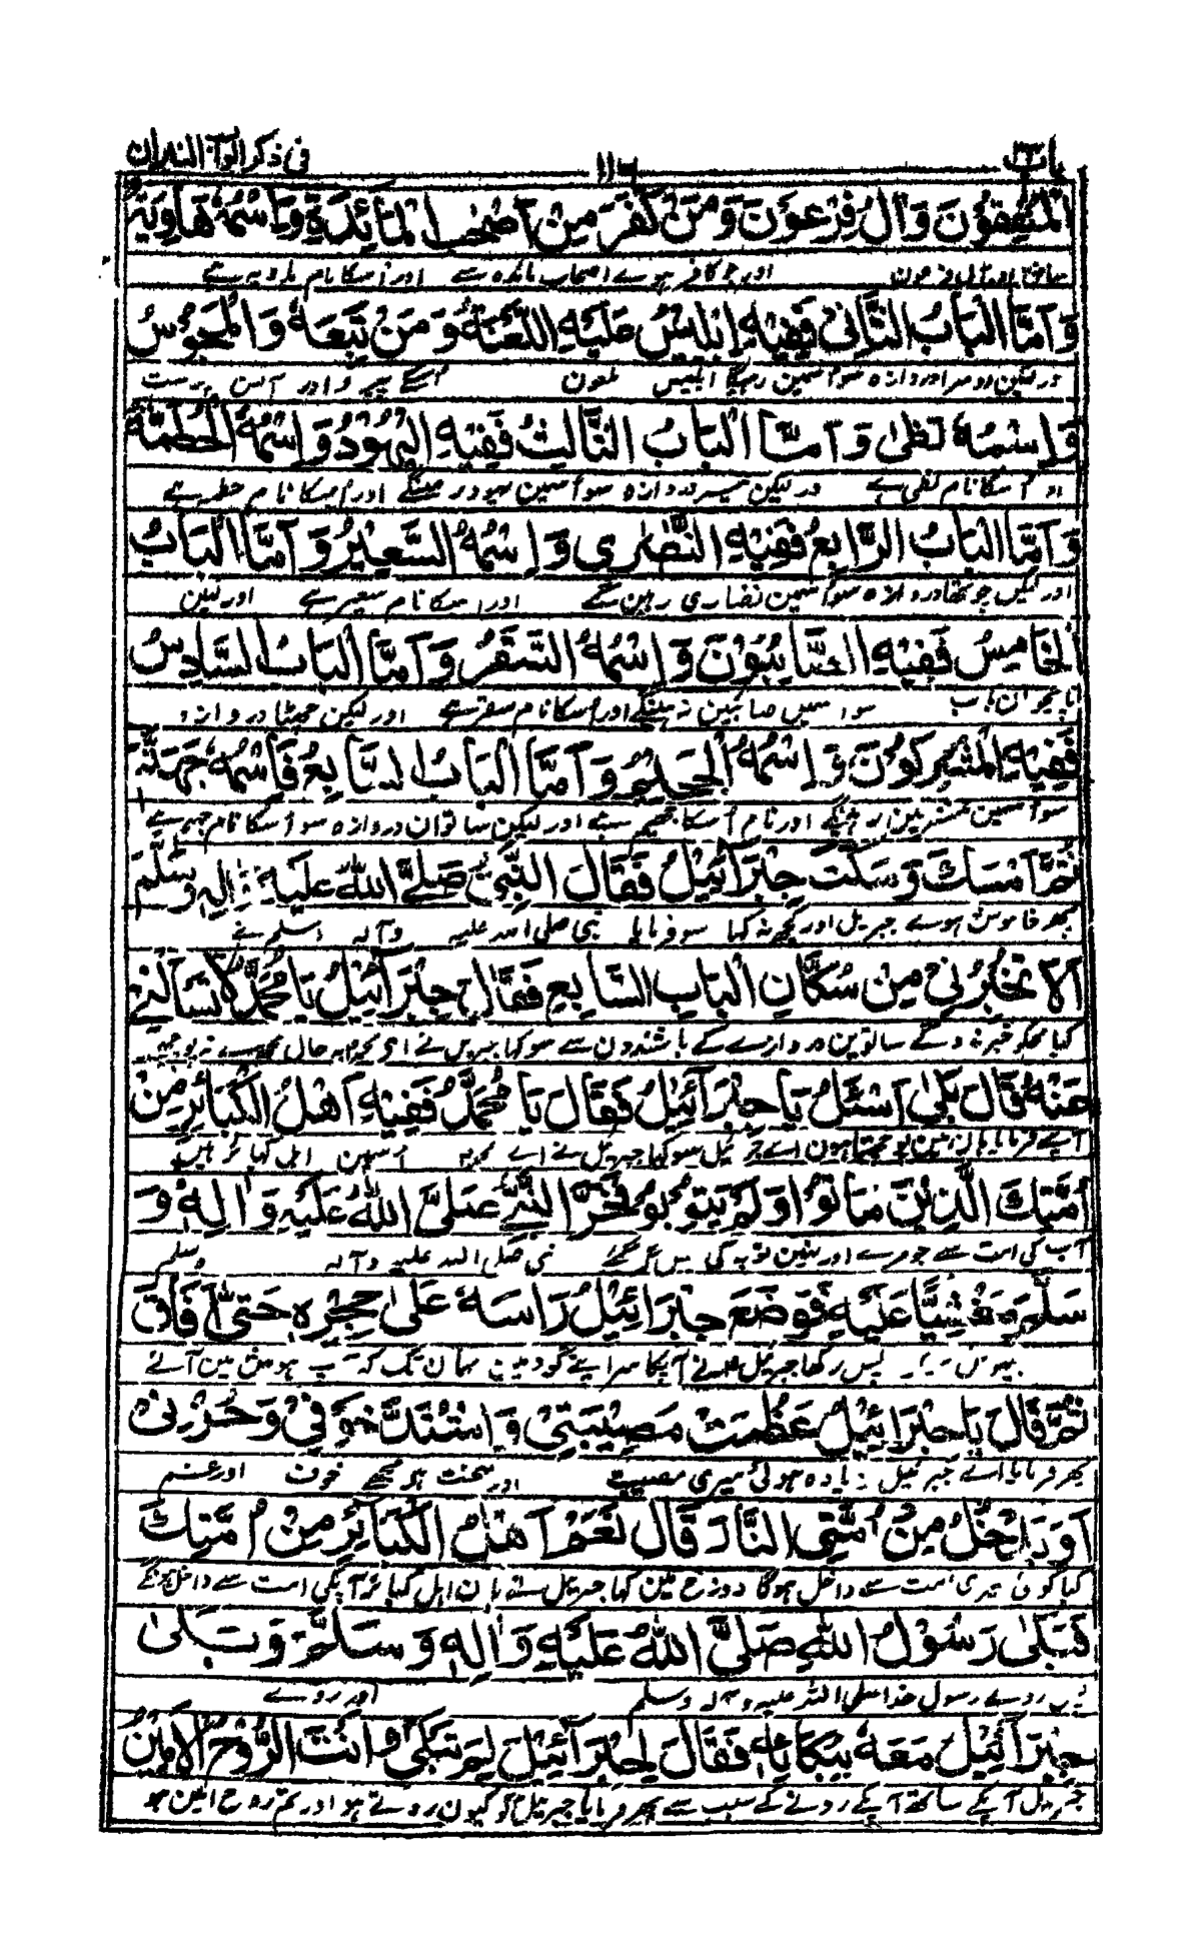 باب ١١٦ في ذكر ابواب النيران
المنفقون وال فرعون ومن كفر من اصحب المائدة واسمه هاوية
منافق اور آل فرعون اور جو کافر ہوے اصحاب مائدہ سے اور اسکا نام ہاویہ ہے
وَاَمَّا الْبَابُ الثَّانِيْ فَفِيْهِ اِبْلِيْسُ عَلَيْهِ اللَّعْنَةُ وَمَنْ تَبِعَهٗ وَالْمَجُوْسُ
ور لیکن دوسرا دروازہ سو اُسمین رہیگا ابلیس ملعون اُسکے پیرو اور آتش پرست
وَاِسْمُهٗ لَظٰى وَاَمَّا الْبَابُ الثَّالِثُ فَفِيْهِ الْيَهُوْدُ وَاِسْمُهُ الْحُطَمَةُ
اور اُسکا نام لظی ہے ور لیکن تیسرا دروازہ سو اُسمین یہود رہینگے اور اُسکا نام حطمہ ہے
وَاَمَّا الْبَابُ الرَّابِعُ فَفِيْهِ النَّصَارٰى وَاِسْمُهُ السَّعِيْرُ وَاَمَّا الْبَابُ
اور لیکن چوتھا دروازہ سو اُسمین نصاری رہین گے اور اسکا نام سعیر ہے اور لیکن
الْخَامِسُ فَفِيْهِ الصَّابِئُوْنَ وَاِسْمُهُ السَّقَرُ وَاَمَّا الْبَابُ السَّادِسُ
پانچوان باب سو اسمیں صابئین رہینگے اور اُسکا نام سقر ہے اور لیکن چھٹا دروازہ
فَفِيْهِ الْمُشْرِكُوْنَ وَاِسْمُهُ الْجَحِيْمُ وَاَمَّا الْبَابُ السَّابِعُ فَاسْمُهٗ جَهَنَّمُ
سو اُسمین مشرکین رہینگے اور نام اُسکا جحیم ہے اور لیکن ساتوان دروازہ سو اُسکا نام جہنم ہے
ثُمَّ اَمْسَكَ وَسَكَتَ جِبْرَآئِيْلُ فَقَالَ النَّبِيُّ صَلَّى اللهُ عَلَيْهِ وَاٰلِهٖ وَسَلَّمَ
پھر خاموش ہوے جبریل اور کچھ نہ کہا سو فرمایا نبی صلی اللہ علیہ وآلہ وسلم نے
اَلَا تُخْبِرُنِيْ مِنْ سُكَّانِ الْبَابِ السَّابِعِ فَقَالَ جِبْرَآئِيْلُ يَا مُحَمَّدُ لَا تَسْاَلْنِيْ
کیا مجھکو خبر نہ دوگے ساتوین دروازے کے باشندون سے سو کہا جبریل نے ای محمد یہ حال مجھسے نہ پوچھیے
عَنْهُ قَالَ بَلٰى اَسْئَلُ يَا جِبْرَآئِيْلُ فَقَالَ يَا مُحَمَّدُ فَفِيْهِ اَهْلُ الْكَبَائِرِ مِنْ
آپنے فرمایا ہان مین پوچھتا ہون اے جبرئیل سو کہا جبریل نے اے محمد اُسمین اہل کبائر ہین
اُمَّتِكَ الَّذِيْنَ مَاتُوْا وَلَمْ يَتُوْبُوْا فَخَرَّ النَّبِيُّ صَلَّى اللهُ عَلَيْهِ وَاٰلِهٖ وَ
آپ کی امت سے جو مرے اور نہین توبہ کی پس گر گئے نبی صلی اللہ علیہ وآلہ وسلم
سَلَّمَ مَغْشِيًّا عَلَيْهِ فَوَضَعَ جِبْرَائِيْلُ رَاسَهٗ عَلٰى حِجْرِهٖ حَتّٰى اَفَاقَ
بیہوش پس رکھا جبرئیل نے آپکا سر اپنے گود مین یہان تک کہ آپ ہوش مین آئے
ثُمَّ قَالَ يَا جِبْرَائِيْلُ عَظُمَتْ مُصِيْبَتِيْ وَاشْتَدَّ خَوْفِيْ وَحُزْنِيْ
پھر فرمایا اے جبرئیل زیادہ ہوئی میری مصیبت اور سخت ہو مجھے خوف اور غم
اَوَيَدْخُلُ مِنْ اُمَّتِي النَّارَ قَالَ نَعَمْ اَهْلُ الْكَبَائِرِ مِنْ اُمَّتِكَ
کیا کوئی میری امت سے داخل ہوگا دوزخ مین کہا جبریل نے ہان اہل کبائر آپکی امت سے داخل ہونگے
فَبَكٰى رَسُوْلُ اللهِ صَلَّى اللهُ عَلَيْهِ وَاٰلِهٖ وَسَلَّمَ وَبَكٰى
پس روے رسول خدا صلی اللہ علیہ وآلہ وسلم اور روے
جِبْرَآئِيْلُ مَعَهٗ بِبُكَائِهٖ فَقَالَ لِجِبْرَآئِيْلَ لِمَ تَبْكِيْ وَاَنْتَ الرُّوْحُ الْاَمِيْنُ
جبریل آپکے ساتھ آپکے رونے کے سبب سے پھر فرمایا جبریل کو کیون روتے ہو اور تم روح امین ہو